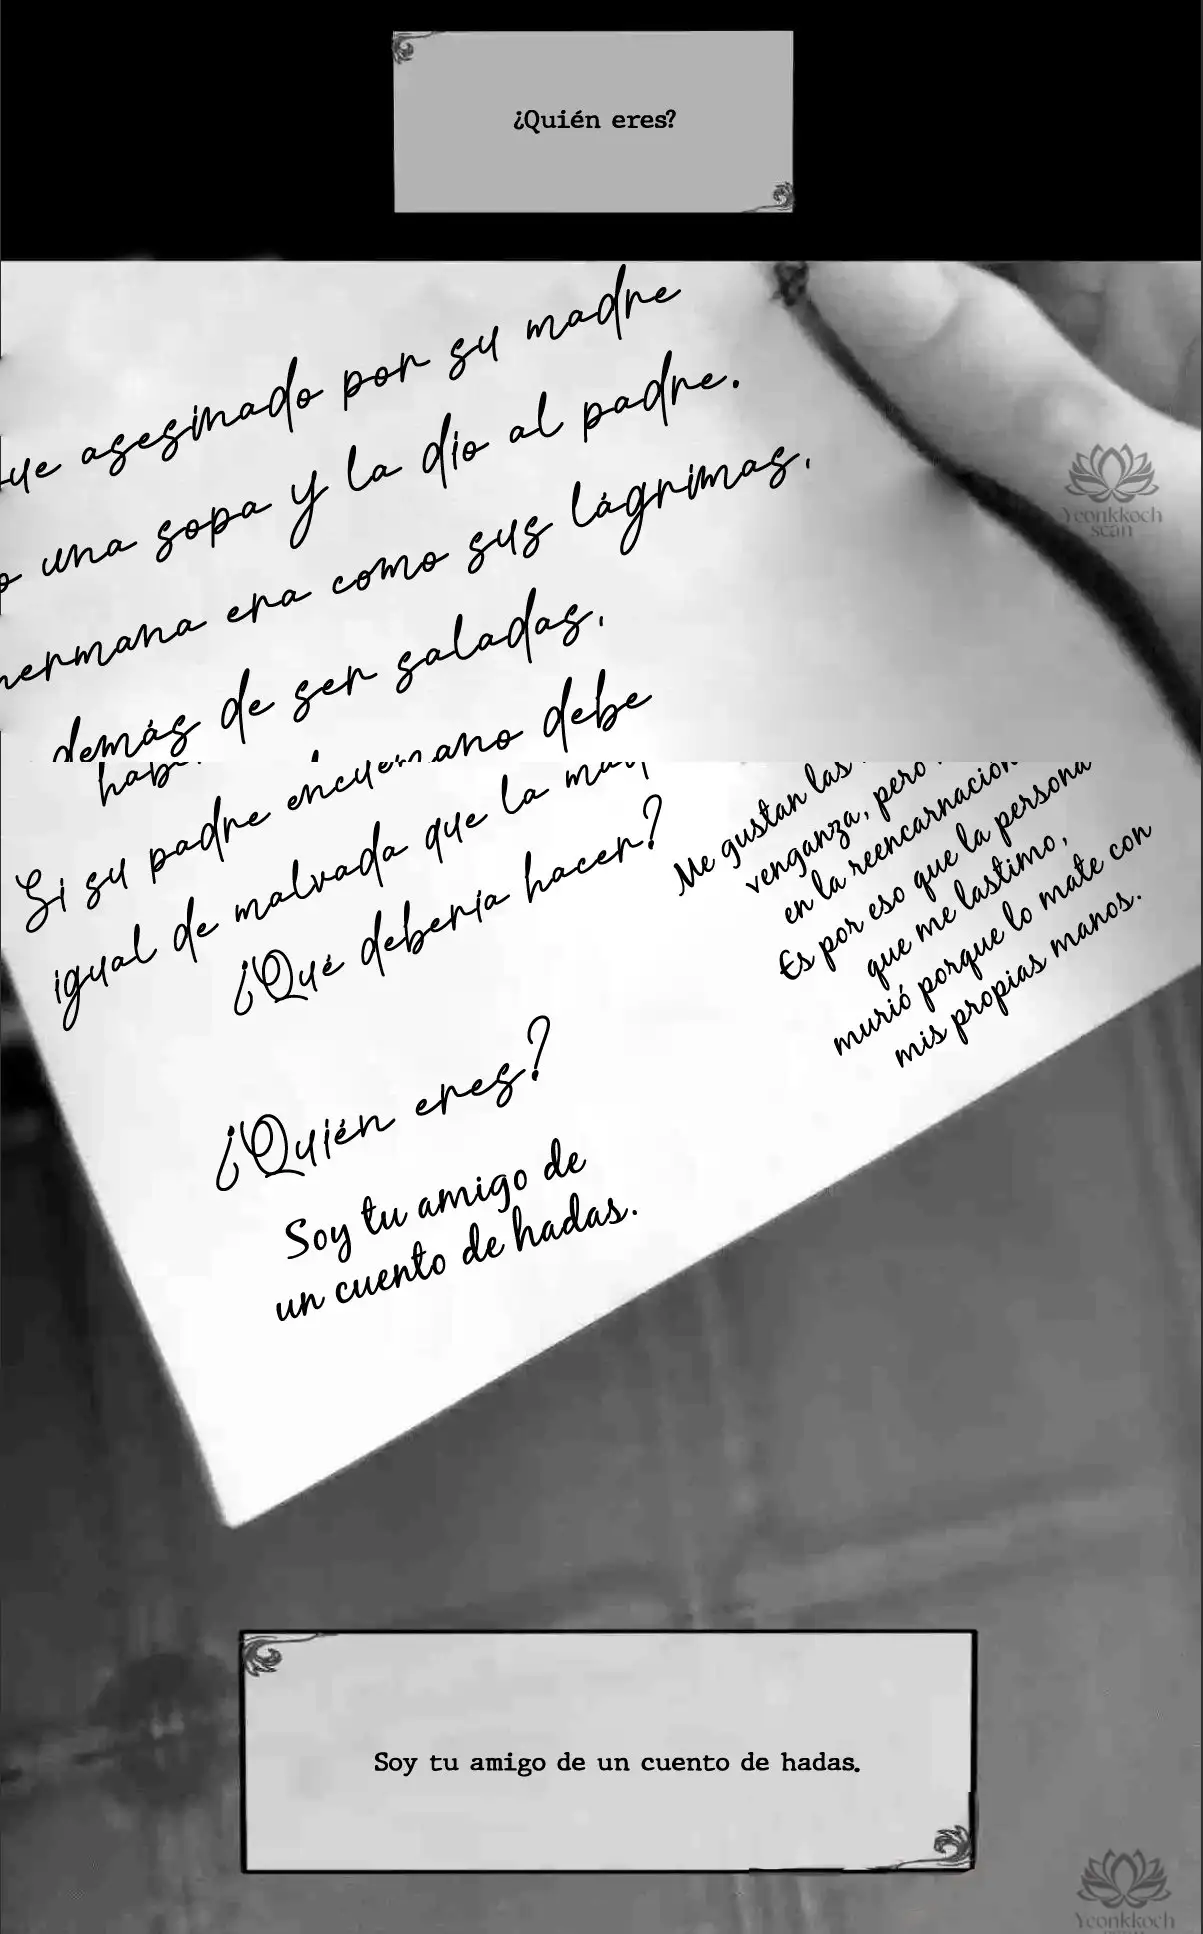 ¿Quién eres?
asesinado por su madre
una sopa y la dio al padre.
era como sus lágrimas,
de ser saladas,
Si su padre debe
igual de malvada que la
¿Qué debería hacer?
Me gustan las
venganza, pero
en la reencarnación
Es por eso que la persona
que me lastimo,
murió porque lo mate con
mis propias manos.
¿Quién eres?
Soy tu amigo de
un cuento de hadas.
Yeonkkoch
scan
Soy tu amigo de un cuento de hadas.
Yeonkkoch